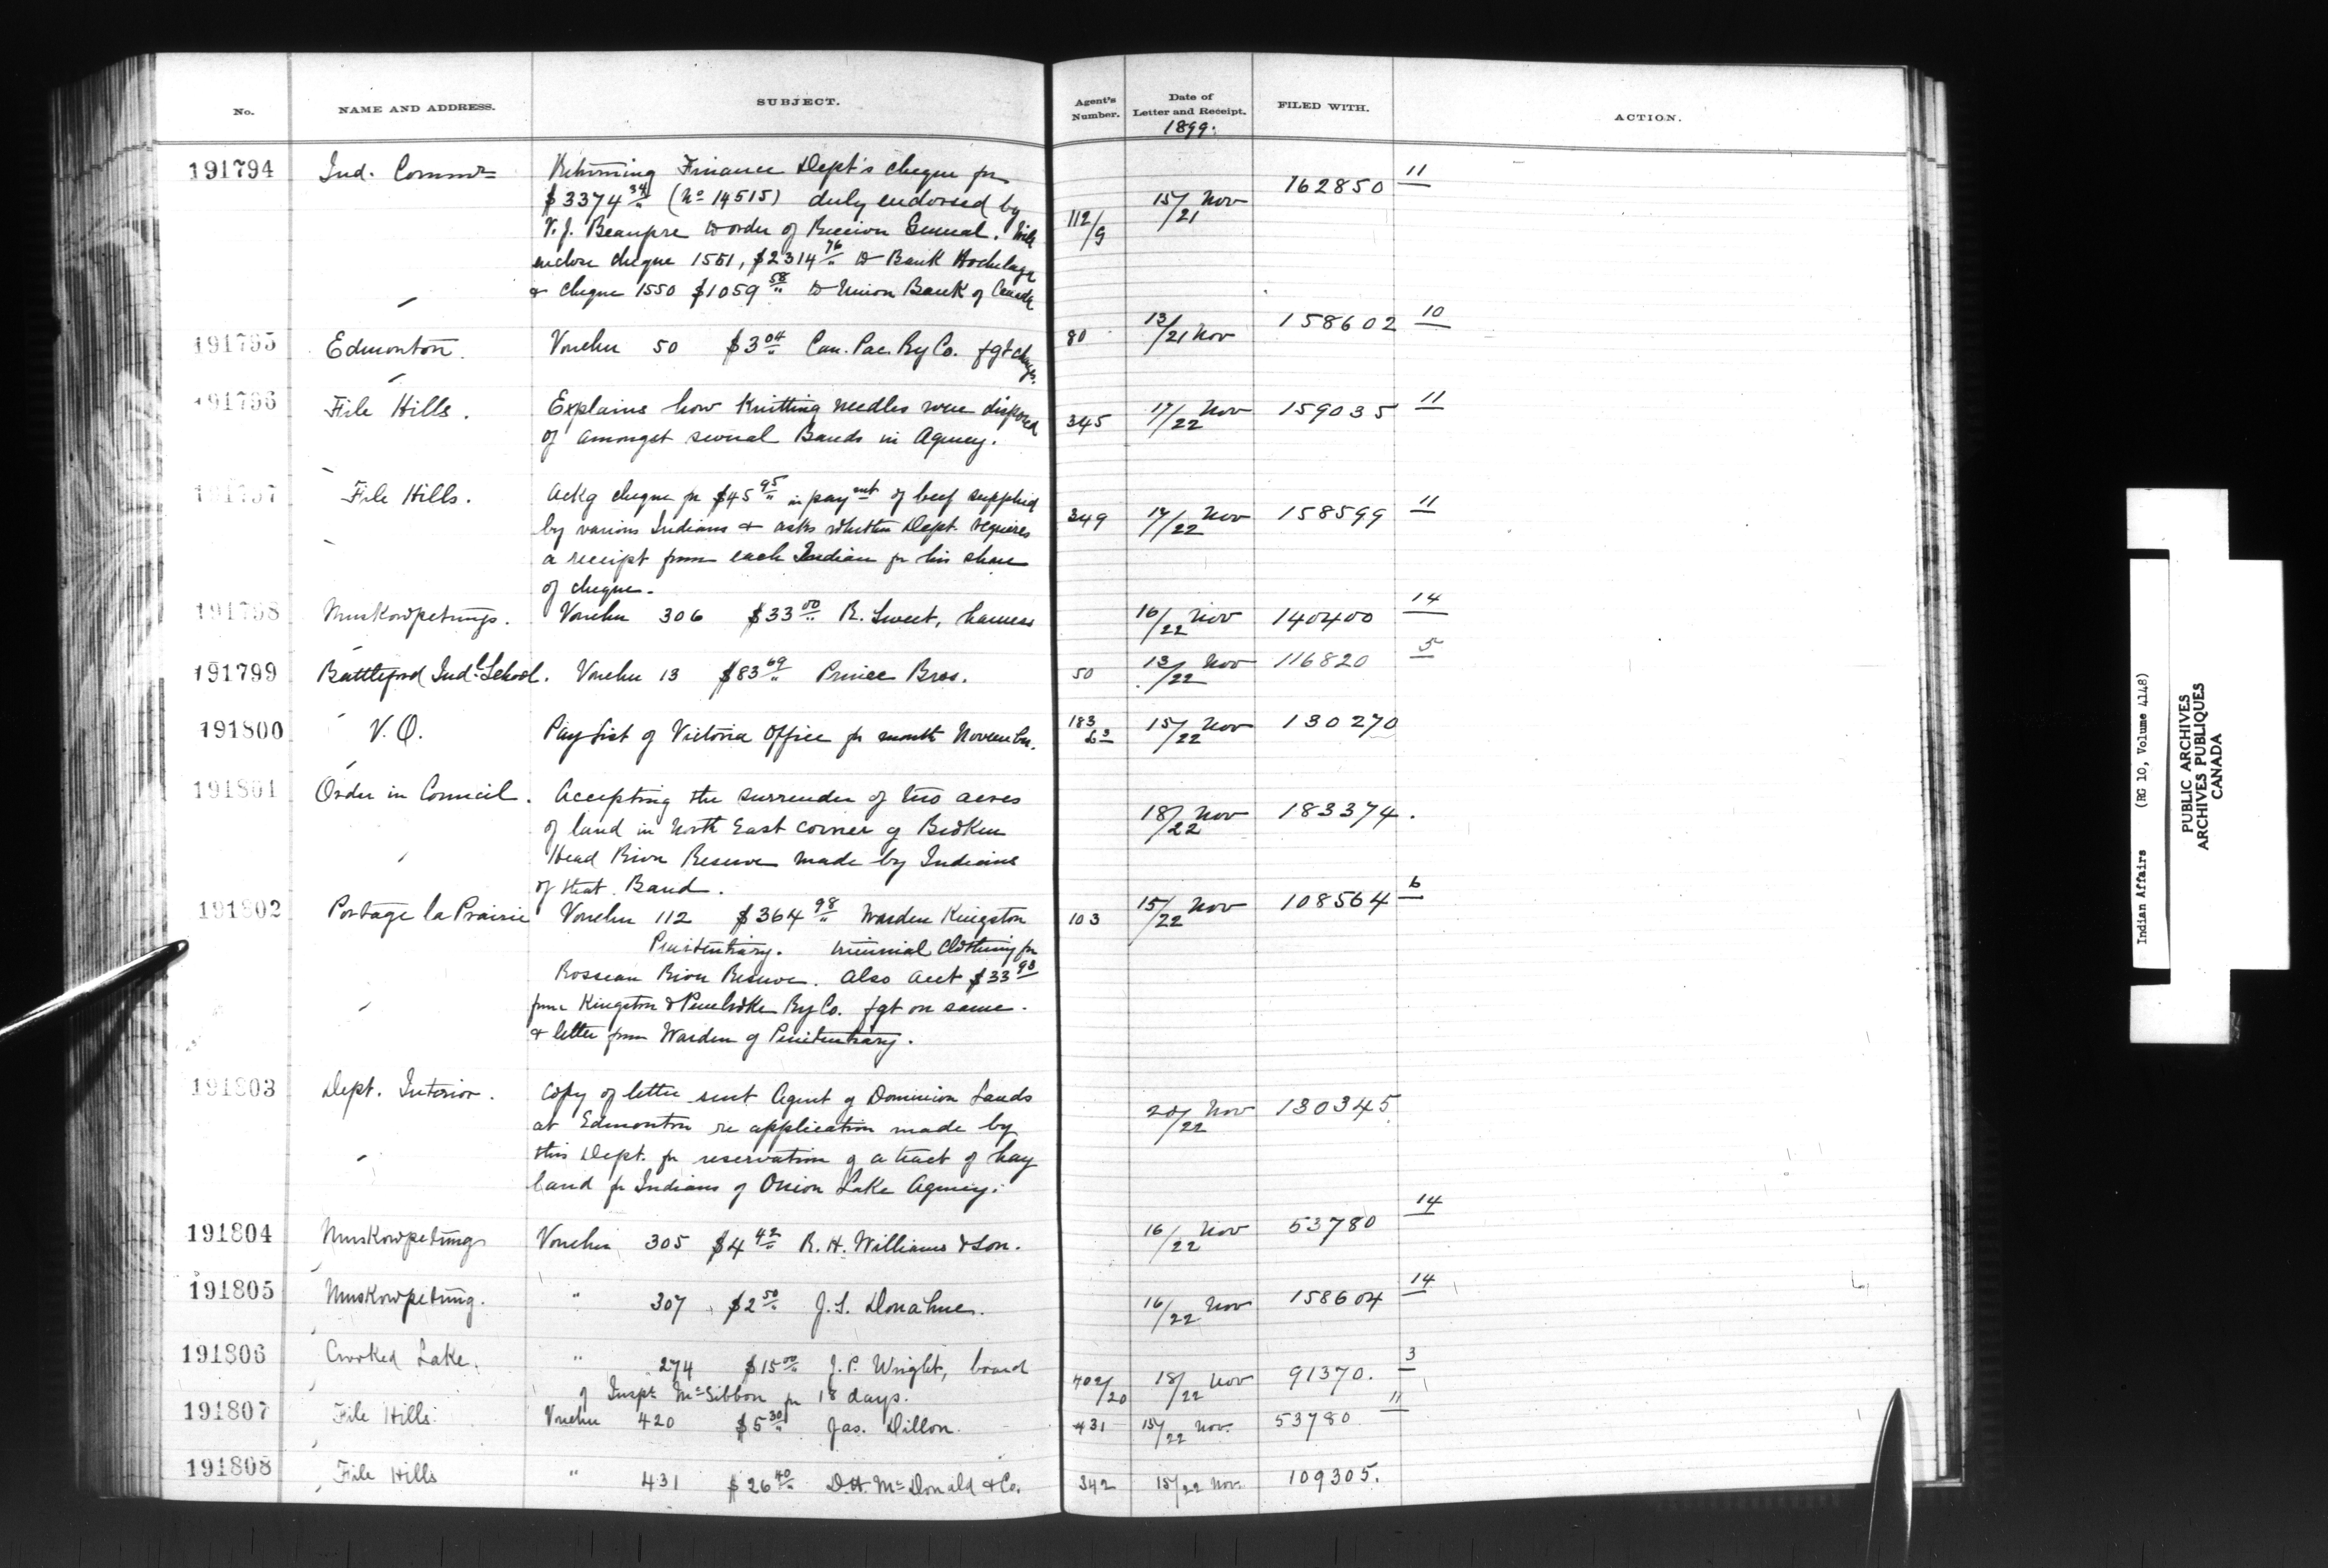 No. NAME AND ADDRESS. SUBJECT. Agent's Number. Date of Letter and Receipt. FILED WITH. ACTION.
1899.
191794 Ind. Commr Returning Finance Dept's cheque for 112/9 15/21 Nov 162850 11
$3374 34 (No 14515) duly endorsed by
V. J. Beaupre to order of Receiver General.
enclose cheque 1551, $2314 76 to Bank Hochelaga
& cheque 1550 $1059 58 to Union Bank of Canada
191795 Edmonton. Voucher 50 $3 04 Can. Pac. Ry Co. fgt chgs. 80 13/21 Nov 158602 10
191796 File Hills. Explains how Knitting needles were disposed 345 17/22 Nov 159035 11
of amongst several Bands in Agency.
191797 File Hills. Ackg cheque for $45 95 in paymt of beef supplied 349 17/22 Nov 158599 11
by various Indians & asks whether Dept. requires
a receipt from each Indian for his share
of cheque.
191798 Muskowpetungs. Voucher 306 $33 00 R. Sweet, harness 16/22 Nov 140400 14
191799 Battleford Indl. School. Voucher 13 $83 69 Prince Bros. 50 13/22 Nov 116820 5
191800 V.O. Pay List of Victoria Office for month November. 183 15/22 Nov 130270
191801 Order in Council. Accepting the surrender of two acres 18/22 Nov 183374.
of land in North East corner of Broken
Head River Reserve made by Indians
of that Band.
191802 Portage la Prairie Voucher 112 $364 98 Warden Kingston 103 15/22 Nov 108564 6
Penitentiary. triennial clothing for
Rosseau River Reserve. Also acct $33 98
from Kingston & Pembroke Ry Co. fgt on same.
& letter from Warden of Penitentiary.
191803 Dept. Interior. Copy of letter sent Agent of Dominion Lands 20/22 Nov 130345
at Edmonton re application made by
this Dept. for reservation of a tract of hay
land for Indians of Onion Lake Agency.
191804 Muskowpetungs Voucher 305 $4 42 R. H. Williams & Son. 16/22 Nov 53780 14
191805 Muskowpetung. " 307 $2 50 J. S. Donahue. 16/22 Nov 158604 14
191806 Crooked Lake. " 274 $15 00 J. P. Wright, board 402/20 18/22 Nov 91370. 3
of Inspr McGibbon for 18 days.
191807 File Hills. Voucher 420 $5 30 Jas. Dillon. 431 15/22 Nov. 53780 11
191808 File Hills " 431 $26 40 D.H. McDonald & Co. 342 15/22 Nov 109305.
Indian Affairs (RG 10, Volume 4148)
PUBLIC ARCHIVES
ARCHIVES PUBLIQUES
CANADA